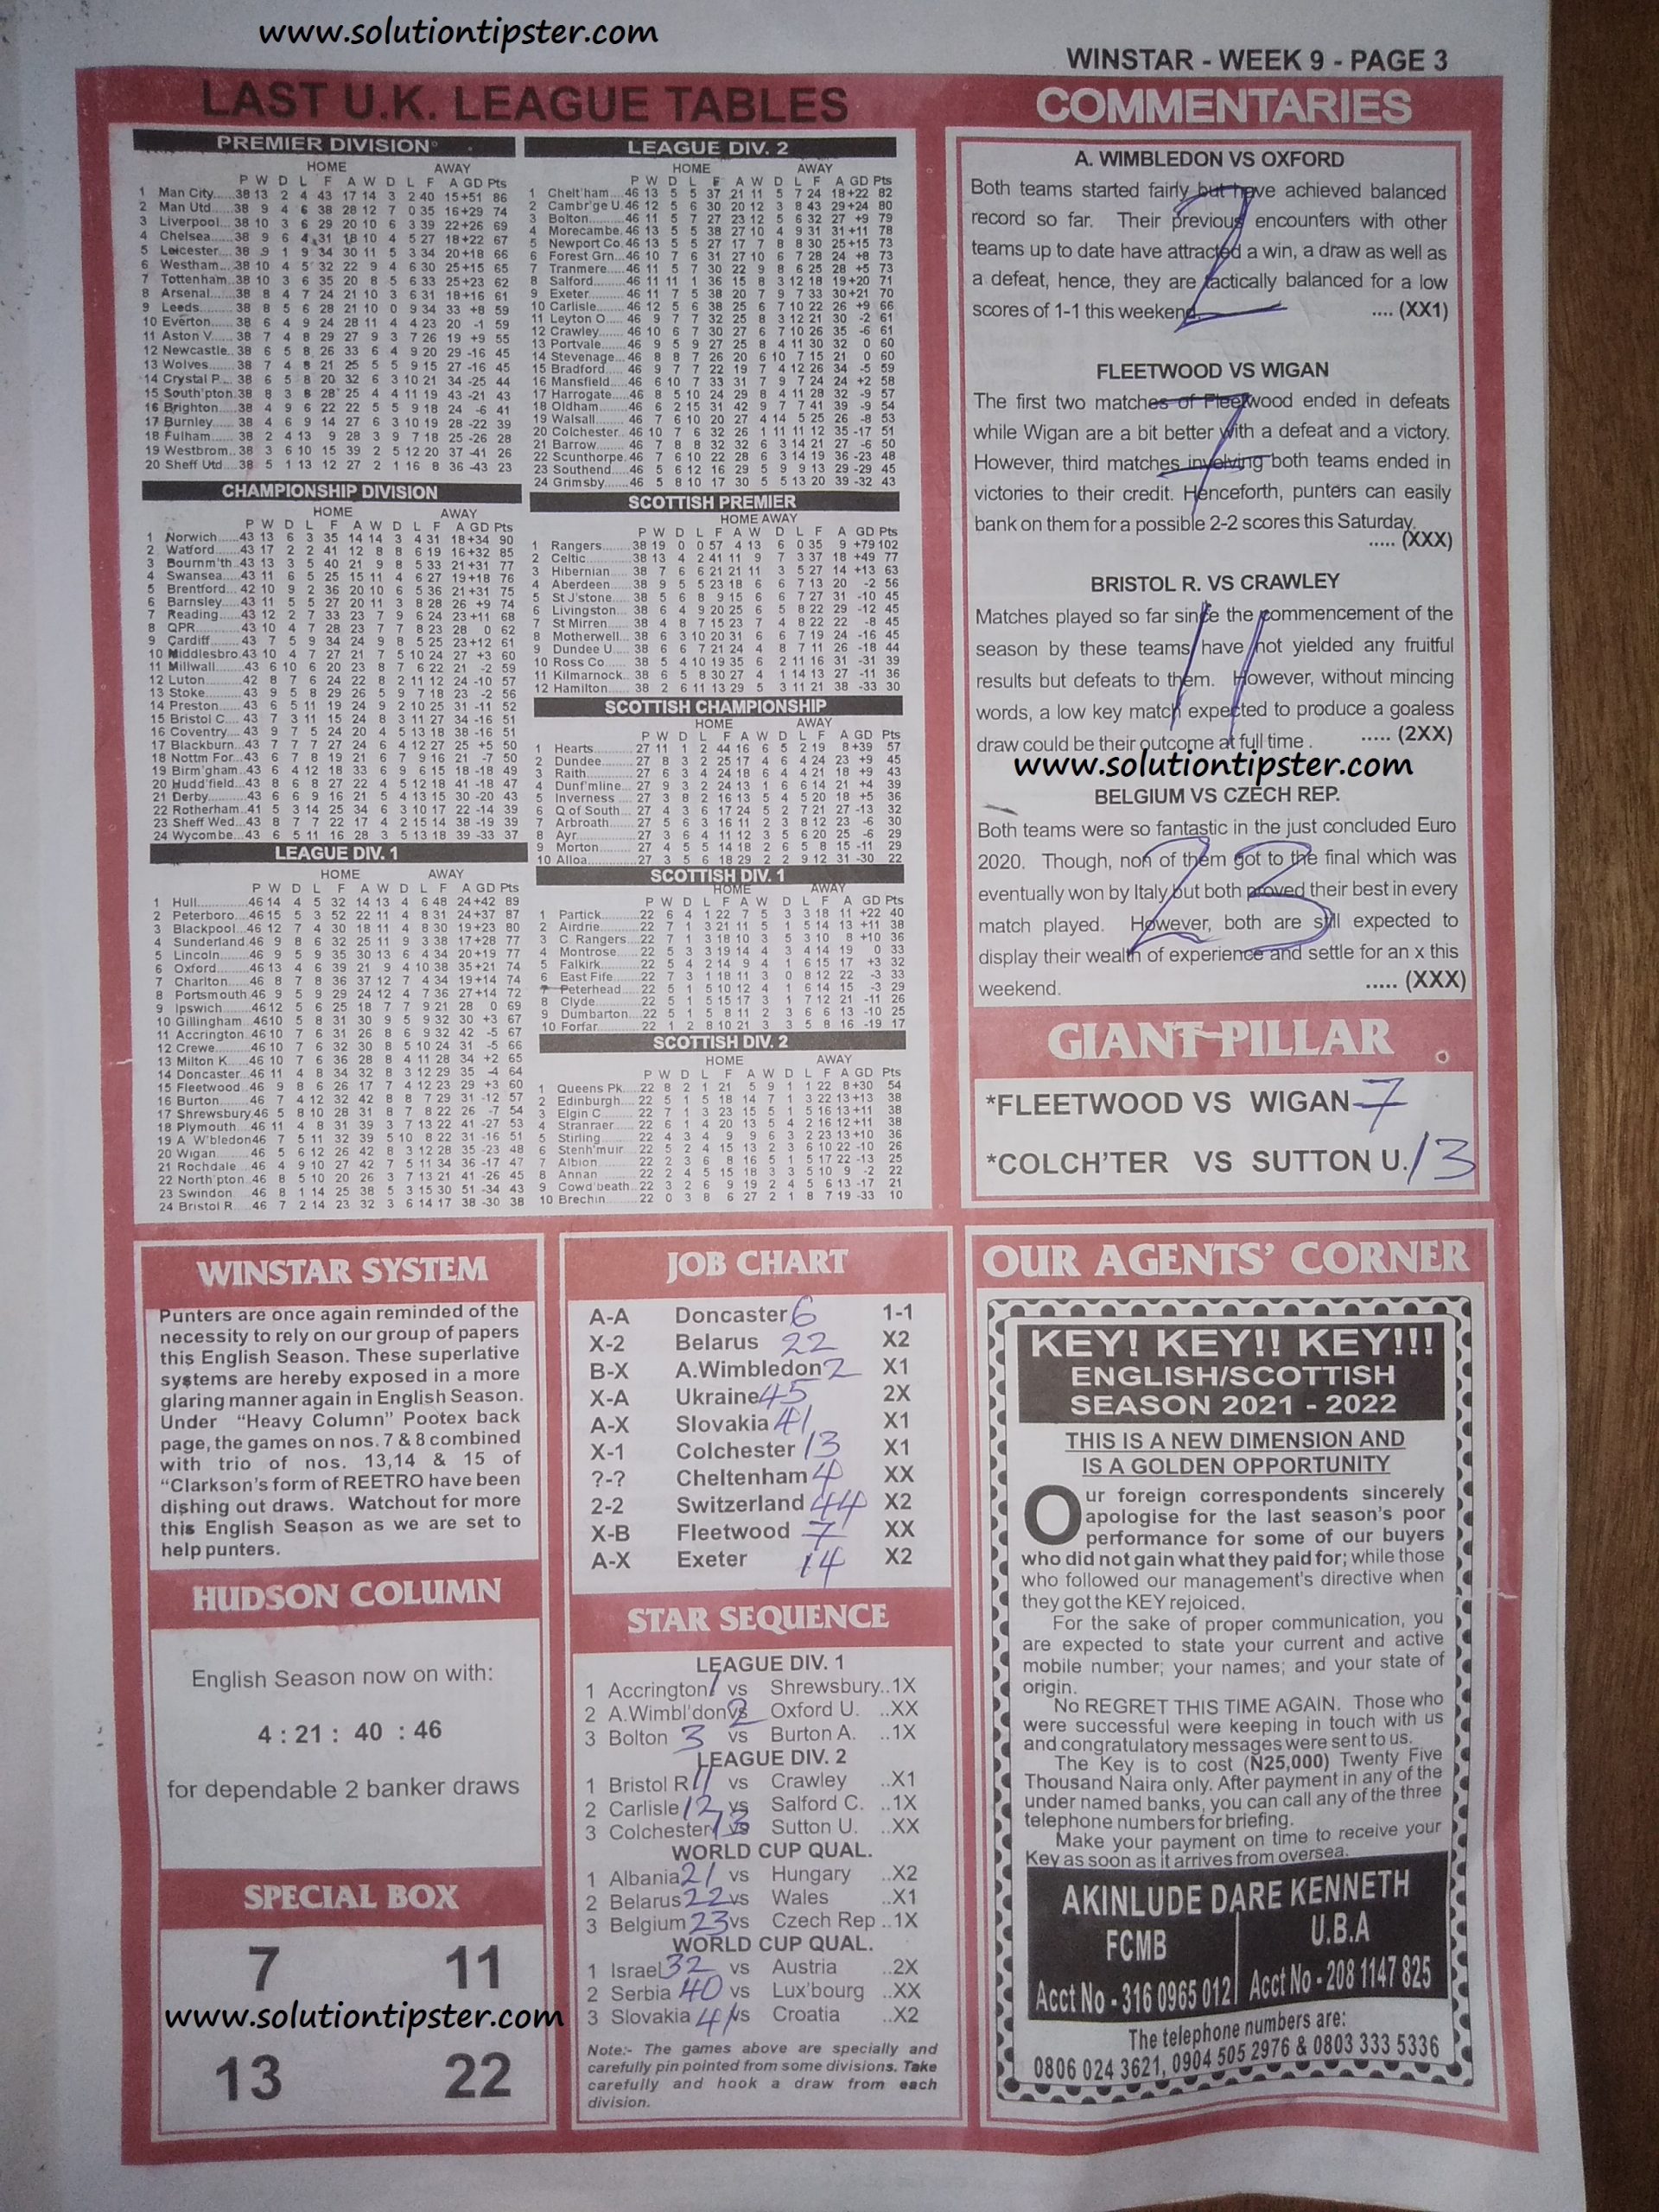 www.solutiontipster.com
WINSTAR - WEEK 9 - PAGE 3
LAST U.K. LEAGUE TABLES
PREMIER DIVISION
HOME AWAY
P W D L F A W D L F A GD Pts
1 Man City......38 13 2 4 43 17 14 3 2 40 15+51 86
2 Man Utd....38 9 4 6 38 28 12 7 0 35 16+29 74
3 Liverpool...38 10 3 6 29 20 10 6 3 39 22+26 69
4 Chelsea.....38 9 6 4 31 18 10 4 5 27 18+22 67
5 Leicester....38 9 1 9 34 30 11 5 3 34 20+18 66
6 Westham...38 10 4 5 32 22 9 4 6 30 25+15 65
7 Tottenham..38 10 3 6 35 20 8 5 6 33 25+23 62
8 Arsenal.....38 8 4 7 24 21 10 3 6 31 18+16 61
9 Leeds.......38 8 5 6 28 21 10 0 9 34 33 +8 59
10 Everton.....38 6 4 9 24 28 11 4 4 23 20 -1 59
11 Aston V.....38 7 4 8 29 27 9 3 7 26 19 +9 55
12 Newcastle..38 6 5 8 26 33 6 4 9 20 29 -16 45
13 Wolves.......38 7 4 8 21 25 5 5 9 15 27 -16 45
14 Crystal P....38 6 5 8 20 32 6 3 10 21 34 -25 44
15 South'pton.38 8 3 8 28 25 4 4 11 19 43 -21 43
16 Brighton.....38 4 9 6 22 22 5 5 9 18 24 -6 41
17 Burnley......38 4 6 9 14 27 6 3 10 19 28 -22 39
18 Fulham......38 2 4 13 9 28 3 9 7 18 25 -26 28
19 Westbrom..38 3 6 10 15 39 2 5 12 20 37 -41 26
20 Sheff Utd....38 5 1 13 12 27 2 1 16 8 36 -43 23
CHAMPIONSHIP DIVISION
HOME AWAY
P W D L F A W D L F A GD Pts
1 Norwich......43 13 6 3 35 14 14 3 4 31 18+34 90
2 Watford......43 17 2 2 41 12 8 8 6 19 16+32 85
3 Bournm'th..43 13 3 5 40 21 9 8 5 33 21+31 77
4 Swansea....43 11 6 5 25 15 11 4 6 27 19+18 76
5 Brentford....42 10 9 2 36 20 10 6 5 36 21+31 75
6 Barnsley.....43 11 5 5 27 20 11 3 8 28 26 +9 74
7 Reading......43 12 2 7 33 23 7 9 6 24 23+11 68
8 QPR...........43 10 4 7 28 23 7 7 8 23 28 0 62
9 Cardiff........43 7 5 9 34 24 9 8 5 25 23+12 61
10 Middlesbro.43 10 4 7 27 21 7 5 10 24 27 +3 60
11 Millwall.......43 6 10 6 20 23 8 7 6 22 21 -2 59
12 Luton.........42 8 7 6 24 22 8 2 11 12 24 -10 57
13 Stoke.........43 9 5 8 29 26 5 9 7 18 23 -2 56
14 Preston......43 6 5 11 19 24 9 2 10 25 31 -11 52
15 Bristol C....43 7 3 11 15 24 8 3 11 27 34 -16 51
16 Coventry....43 9 7 5 24 20 4 5 13 18 38 -16 51
17 Blackburn...43 7 7 7 27 24 6 4 12 27 25 +5 50
18 Nottm For...43 6 7 8 19 21 6 7 9 16 21 -7 50
19 Birm'gham..43 6 4 12 18 33 6 9 6 15 18 -18 49
20 Hudd'field...43 8 6 8 27 22 4 5 12 18 41 -18 47
21 Derby.........43 6 6 9 16 21 5 4 13 15 30 -20 43
22 Rotherham..41 5 3 14 25 34 6 3 10 17 22 -14 39
23 Sheff Wed...43 8 7 7 22 17 4 2 15 14 38 -19 39
24 Wycombe...43 6 5 11 16 28 3 5 13 18 39 -33 37
LEAGUE DIV. 1
HOME AWAY
P W D L F A W D L F A GD Pts
1 Hull...........46 14 4 5 32 14 13 4 6 48 24+42 89
2 Peterboro....46 15 5 3 52 22 11 4 8 31 24+37 87
3 Blackpool....46 12 7 4 30 18 11 4 8 30 19+23 80
4 Sunderland.46 9 8 6 32 25 11 9 3 38 17+28 77
5 Lincoln.......46 9 5 9 35 30 13 6 4 34 20+19 77
6 Oxford.......46 13 4 6 39 21 9 4 10 38 35+21 74
7 Charlton.....46 8 7 8 36 37 12 7 4 34 19+14 74
8 Portsmouth 46 9 5 9 29 24 12 4 7 36 27+14 72
9 Ipswich.......46 12 5 6 25 18 7 7 9 21 28 0 69
10 Gillingham...46 10 5 8 31 30 9 5 9 32 30 +3 67
11 Accrington...46 10 7 6 31 26 8 6 9 32 42 -5 67
12 Crewe........46 10 7 6 32 30 8 5 10 24 31 -5 66
13 Milton K......46 10 7 6 36 28 8 4 11 28 34 +2 65
14 Doncaster...46 11 4 8 34 32 8 3 12 29 35 -4 64
15 Fleetwood...46 9 8 6 26 17 7 4 12 23 29 +3 60
16 Burton........46 7 4 12 32 42 8 8 7 29 31 -12 57
17 Shrewsbury.46 5 8 10 28 31 8 7 8 22 26 -7 54
18 Plymouth....46 11 4 8 31 39 3 7 13 22 41 -27 53
19 A. W'bledon46 7 5 11 32 39 5 10 8 22 31 -16 51
20 Wigan........46 5 6 12 26 42 8 3 12 28 35 -23 48
21 Rochdale....46 4 9 10 27 42 7 5 11 34 36 -17 47
22 North'pton..46 8 5 10 20 26 3 7 13 21 41 -26 45
23 Swindon.....46 8 1 14 25 38 5 3 15 30 51 -34 43
24 Bristol R.....46 7 2 14 23 32 3 6 14 17 38 -30 38
LEAGUE DIV. 2
HOME AWAY
P W D L F A W D L F A GD Pts
1 Chelt'ham....46 13 5 5 37 21 11 5 7 24 18+22 82
2 Cambr'ge U.46 12 5 6 30 20 12 3 8 43 29+24 80
3 Bolton.........46 11 5 7 27 23 12 5 6 32 27 +9 79
4 Morecambe.46 13 5 5 38 27 10 4 9 31 31+11 78
5 Newport Co.46 13 5 5 27 17 7 8 8 30 25+15 73
6 Forest Grn...46 10 7 6 31 27 10 6 7 28 24 +8 73
7 Tranmere.....46 11 5 7 30 22 9 8 6 25 28 +5 73
8 Salford........46 11 11 1 36 15 8 3 12 18 19+20 71
9 Exeter.........46 11 7 5 38 20 7 9 7 33 30+21 70
10 Carlisle.......46 12 5 6 38 25 6 7 10 22 26 +9 66
11 Leyton O.....46 9 7 7 32 25 8 3 12 21 30 -2 61
12 Crawley......46 10 6 7 30 27 6 7 10 26 35 -6 61
13 Portvale......46 9 5 9 27 25 8 4 11 30 32 0 60
14 Stevenage...46 8 8 7 26 20 6 10 7 15 21 0 60
15 Bradford.....46 9 7 7 22 19 7 4 12 26 34 -5 59
16 Mansfield....46 6 10 7 33 31 7 9 7 24 24 +2 58
17 Harrogate...46 8 5 10 24 29 8 4 11 28 32 -9 57
18 Oldham......46 6 2 15 31 42 9 7 7 41 39 -9 54
19 Walsall.......46 7 6 10 20 27 4 14 5 25 26 -8 53
20 Colchester..46 10 7 6 32 26 1 11 11 12 35 -17 51
21 Barrow.......46 7 8 8 32 32 6 3 14 21 27 -6 50
22 Scunthorpe.46 7 6 10 22 28 6 3 14 19 36 -23 48
23 Southend....46 5 6 12 16 29 5 9 9 13 29 -29 45
24 Grimsby......46 5 8 10 17 30 5 5 13 20 39 -32 43
SCOTTISH PREMIER
HOME AWAY
P W D L F A W D L F A GD Pts
1 Rangers......38 19 0 0 57 4 13 6 0 35 9 +79 102
2 Celtic..........38 13 4 2 41 11 9 7 3 37 18 +49 77
3 Hibernian.....38 7 6 6 21 21 11 3 5 27 14 +13 63
4 Aberdeen.....38 9 5 5 23 18 6 6 7 13 20 -2 56
5 St J'stone.....38 5 6 8 9 15 6 6 7 27 31 -10 45
6 Livingston....38 6 4 9 20 25 6 5 8 22 29 -12 45
7 St Mirren.....38 4 8 7 15 23 7 4 8 22 22 -8 45
8 Motherwell...38 6 3 10 20 31 6 6 7 19 24 -16 45
9 Dundee U....38 6 6 7 21 24 4 8 7 11 26 -18 44
10 Ross Co.....38 5 4 10 19 35 6 2 11 16 31 -31 39
11 Kilmarnock..38 6 5 8 30 27 4 1 14 13 27 -11 36
12 Hamilton.....38 2 6 11 13 29 5 3 11 21 38 -33 30
SCOTTISH CHAMPIONSHIP
HOME AWAY
P W D L F A W D L F A GD Pts
1 Hearts..........27 11 1 2 44 16 6 5 2 19 8+39 57
2 Dundee........27 8 3 2 25 17 4 6 4 24 23 +9 45
3 Raith...........27 6 3 4 24 18 6 4 4 21 18 +9 43
4 Dunf'mline...27 9 3 2 24 13 1 6 6 14 21 +4 39
5 Inverness.....27 3 8 2 16 13 5 4 5 20 18 +5 36
6 Q of South...27 4 3 6 17 24 5 2 7 21 27 -13 32
7 Arbroath......27 5 6 3 16 11 2 3 8 12 23 -6 30
8 Ayr.............27 3 6 4 11 12 3 5 6 20 25 -6 29
9 Morton........27 4 5 5 14 18 2 6 5 8 15 -11 29
10 Alloa..........27 3 5 6 18 29 2 2 9 12 31 -30 22
SCOTTISH DIV. 1
HOME AWAY
P W D L F A W D L F A GD Pts
1 Partick.......22 6 4 1 22 7 5 3 3 18 11 +22 40
2 Airdrie........22 7 1 3 21 11 5 1 5 14 13 +11 38
3 C. Rangers...22 7 1 3 18 10 3 5 3 10 8 +10 36
4 Montrose.....22 5 3 3 19 14 4 3 4 14 19 0 33
5 Falkirk........22 5 4 2 14 9 4 1 6 15 17 +3 32
6 East Fife.....22 7 3 1 18 11 3 0 8 12 22 -3 33
7 Peterhead....22 5 1 5 10 12 4 1 6 14 15 -3 29
8 Clyde.........22 5 1 5 15 17 3 1 7 12 21 -11 26
9 Dumbarton...22 5 1 5 8 11 2 3 6 6 13 -10 25
10 Forfar........22 1 2 8 10 21 3 3 5 8 16 -19 17
SCOTTISH DIV. 2
HOME AWAY
P W D L F A W D L F A GD Pts
1 Queens Pk....22 8 2 1 21 5 9 1 1 22 8+30 54
2 Edinburgh....22 5 1 5 18 14 7 1 3 22 13+13 38
3 Elgin C.......22 7 1 3 23 15 5 1 5 16 13+11 38
4 Stranraer.....22 6 1 4 20 13 5 4 2 16 12+11 38
5 Stirling.......22 4 3 4 9 9 6 3 2 23 13+10 36
6 Stenh'muir...22 5 2 4 15 13 2 3 6 10 22 -10 26
7 Albion........22 2 3 6 8 16 5 1 5 17 22 -13 25
8 Annan........22 2 4 5 15 18 3 3 5 10 9 -2 22
9 Cowd'beath..22 3 2 6 9 19 2 4 5 6 13 -17 21
10 Brechin......22 0 3 8 6 27 2 1 8 7 19 -33 10
COMMENTARIES
A. WIMBLEDON VS OXFORD
Both teams started fairly but have achieved balanced
record so far. Their previous encounters with other
teams up to date have attracted a win, a draw as well as
a defeat, hence, they are tactically balanced for a low
scores of 1-1 this weekend. .... (XX1)
2
FLEETWOOD VS WIGAN
The first two matches of Fleetwood ended in defeats
while Wigan are a bit better with a defeat and a victory.
However, third matches involving both teams ended in
victories to their credit. Henceforth, punters can easily
bank on them for a possible 2-2 scores this Saturday.
..... (XXX)
7
BRISTOL R. VS CRAWLEY
Matches played so far since the commencement of the
season by these teams have not yielded any fruitful
results but defeats to them. However, without mincing
words, a low key match expected to produce a goaless
draw could be their outcome at full time . ..... (2XX)
11
www.solutiontipster.com
BELGIUM VS CZECH REP.
Both teams were so fantastic in the just concluded Euro
2020. Though, non of them got to the final which was
eventually won by Italy but both proved their best in every
match played. However, both are still expected to
display their wealth of experience and settle for an x this
weekend. ..... (XXX)
23
GIANT PILLAR
*FLEETWOOD VS WIGAN 7
*COLCH'TER VS SUTTON U. 13
WINSTAR SYSTEM
Punters are once again reminded of the
necessity to rely on our group of papers
this English Season. These superlative
systems are hereby exposed in a more
glaring manner again in English Season.
Under "Heavy Column" Pootex back
page, the games on nos. 7 & 8 combined
with trio of nos. 13,14 & 15 of
"Clarkson's form of REETRO have been
dishing out draws. Watchout for more
this English Season as we are set to
help punters.
HUDSON COLUMN
English Season now on with:
4 : 21 : 40 : 46
for dependable 2 banker draws
SPECIAL BOX
7 11
www.solutiontipster.com
13 22
JOB CHART
A-A Doncaster 6 1-1
X-2 Belarus 22 X2
B-X A.Wimbledon 2 X1
X-A Ukraine 45 2X
A-X Slovakia 41 X1
X-1 Colchester 13 X1
?-? Cheltenham 4 XX
2-2 Switzerland 44 X2
X-B Fleetwood 7 XX
A-X Exeter 14 X2
STAR SEQUENCE
LEAGUE DIV. 1
1 Accrington 1 vs Shrewsbury..1X
2 A.Wimbl'don 2 vs Oxford U. ..XX
3 Bolton 3 vs Burton A. ..1X
LEAGUE DIV. 2
1 Bristol R 11 vs Crawley ..X1
2 Carlisle 12 vs Salford C. ..1X
3 Colchester 13 vs Sutton U. ..XX
WORLD CUP QUAL.
1 Albania 21 vs Hungary ..X2
2 Belarus 22 vs Wales ..X1
3 Belgium 23 vs Czech Rep ..1X
WORLD CUP QUAL.
1 Israel 32 vs Austria ..2X
2 Serbia 40 vs Lux'bourg ..XX
3 Slovakia 41 vs Croatia ..X2
Note:- The games above are specially and
carefully pin pointed from some divisions. Take
carefully and hook a draw from each
division.
OUR AGENTS' CORNER
KEY! KEY!! KEY!!!
ENGLISH/SCOTTISH
SEASON 2021 - 2022
THIS IS A NEW DIMENSION AND
IS A GOLDEN OPPORTUNITY
Our foreign correspondents sincerely
apologise for the last season's poor
performance for some of our buyers
who did not gain what they paid for; while those
who followed our management's directive when
they got the KEY rejoiced.
For the sake of proper communication, you
are expected to state your current and active
mobile number; your names; and your state of
origin.
No REGRET THIS TIME AGAIN. Those who
were successful were keeping in touch with us
and congratulatory messages were sent to us.
The Key is to cost (N25,000) Twenty Five
Thousand Naira only. After payment in any of the
under named banks, you can call any of the three
telephone numbers for briefing.
Make your payment on time to receive your
Key as soon as it arrives from oversea.
AKINLUDE DARE KENNETH
FCMB U.B.A
Acct No - 316 0965 012 Acct No - 208 1147 825
The telephone numbers are:
0806 024 3621, 0904 505 2976 & 0803 333 5336